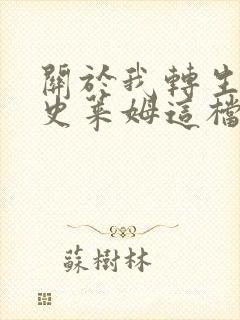 關於我轉生
史萊姆這檔
蘇樹林